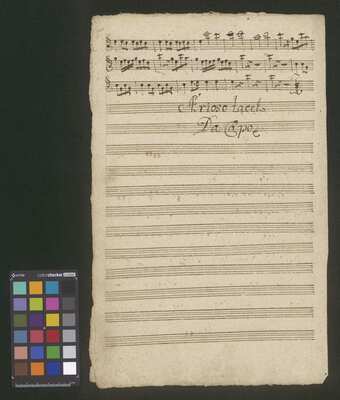 Arioso tacet
Da Capo
colorchecker